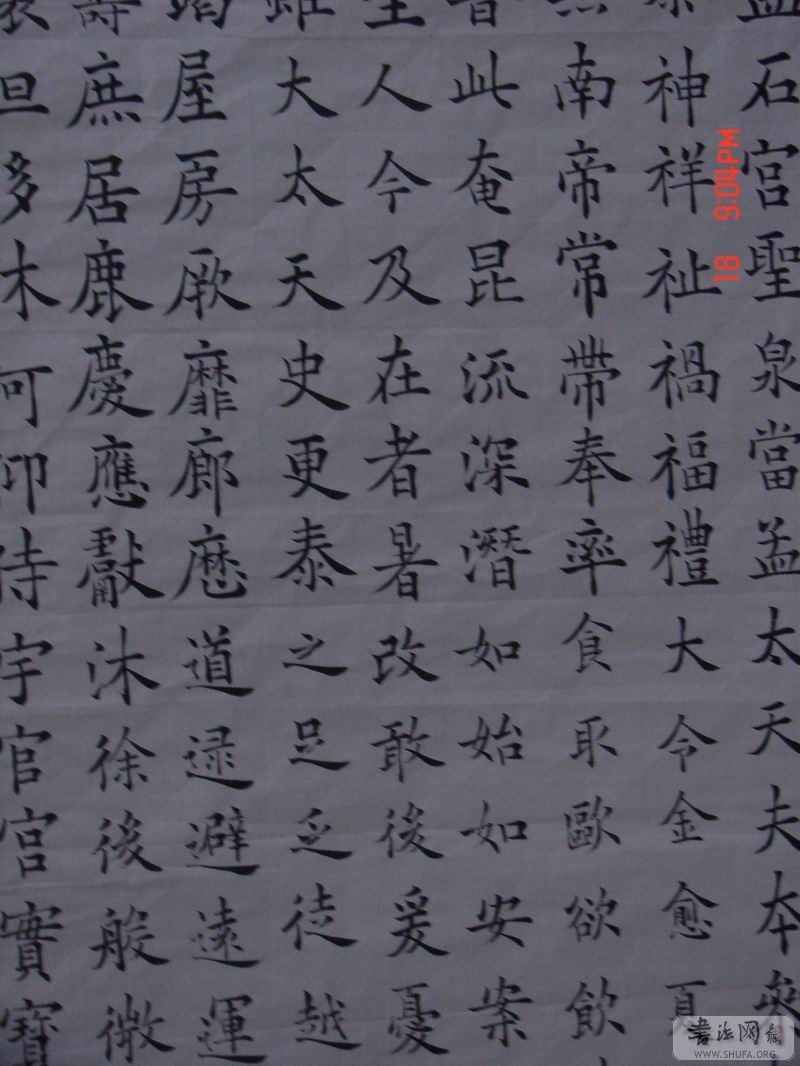 石宮聖泉當太天夫本
神祥祉禍福禮大令金愈夏
南帝常帶奉率食取歐欲飲
此奄昆流深潛如始如安案
人今及在者暑改敢後爰憂
雖大太天史更泰之足乏徒越
屋房厥靡廊歷道逯避遠運
壽庶居鹿慶應獻沐徐後般微
旦多木何仰待宇官宮實寶
18 9:04PM
書法网
WWW.SHUFA.ORG